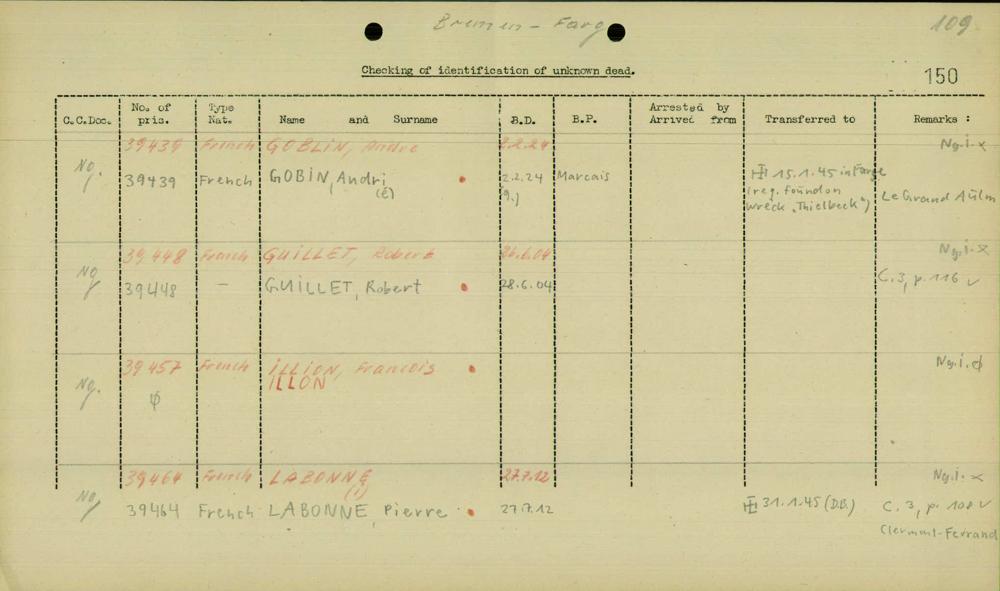 Bremen - Farg
109
Checking of identification of unknown dead.
150
C.C.Doc. No. of pris. Type Nat. Name and Surname B.D. B.P. Arrested by Arrived from Transferred to Remarks :
39439 French GOBLIN, Andre 2.2.24 Ng.i.x
Ng. 39439 French GOBIN, Andri (é) 2.2.24 (9.) Marcais 15.1.45 in Farge
(reg. found on
wreck "Thielbeck") Le Grand
39448 French GUILLET, Robert 26.6.04 Ng.i.x
Ng 39448 - GUILLET, Robert 28.6.04 C.3, p. 116 v
39457 French ILLION, Francois Ng.i.ø
Ng. ø ILLON
39464 French LABONNE (i) 27.7.12 Ng.i.x
Ng 39464 French LABONNE, Pierre 27.7.12 31.1.45 (D.B.) C. 3, p. 108 v
Clermont-Ferrand